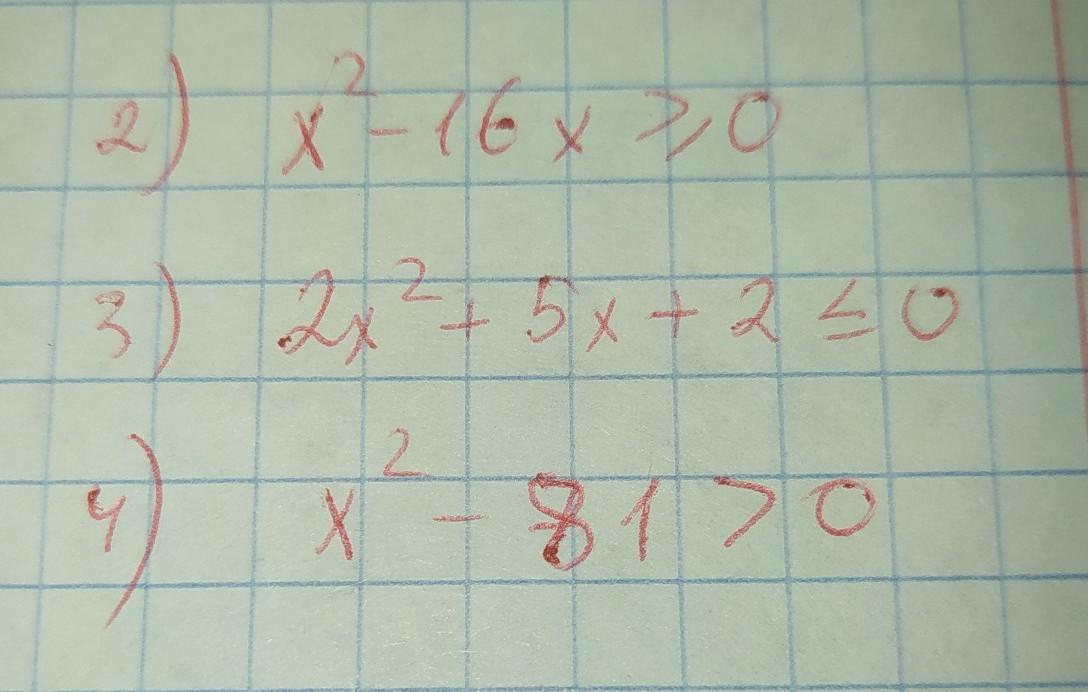 2) x² - 16x ⩾ 0
3) 2x² + 5x + 2 ≤ 0
4) x² - 81 > 0